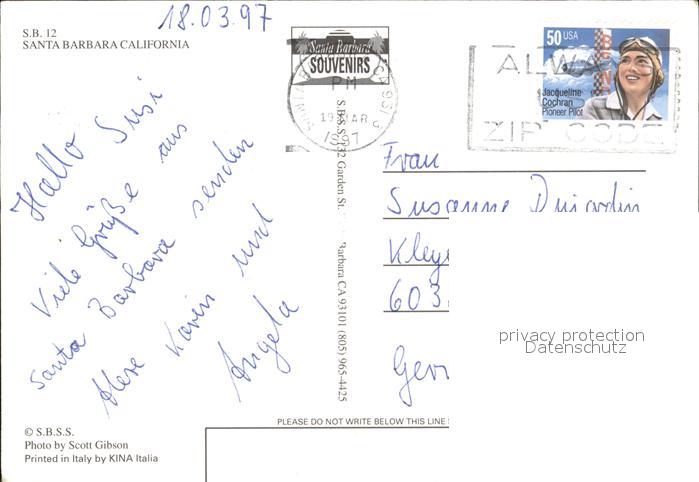 18.03.97
S.B. 12
SANTA BARBARA CALIFORNIA
Santa Barbara
SOUVENIRS
PM
1997
50 USA
Jacqueline
Cochran
Pioneer Pilot
ALWA
ZIP CODE
Hallo Susi
Viele Grüße aus
Santa Barbara senden
Karin und
Angela
Frau
Susanne
603
privacy protection
Datenschutz
S.B.S.S. 732 Garden St.
Barbara CA 93101 (805) 965-4425
PLEASE DO NOT WRITE BELOW THIS LINE
© S.B.S.S.
Photo by Scott Gibson
Printed in Italy by KINA Italia